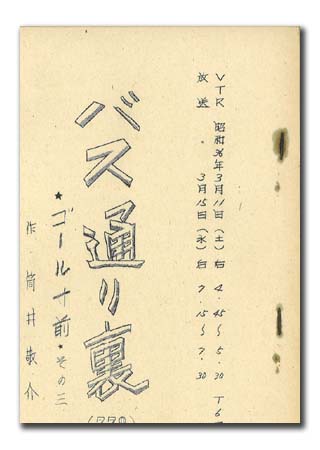 VTR 昭和36年3月11日(土)后 4.45〜5.30 T6
放送 . 3月15日(水)后 7.15〜7.30
バス通り裏
★ゴール寸前★その三
作 筒井敬介